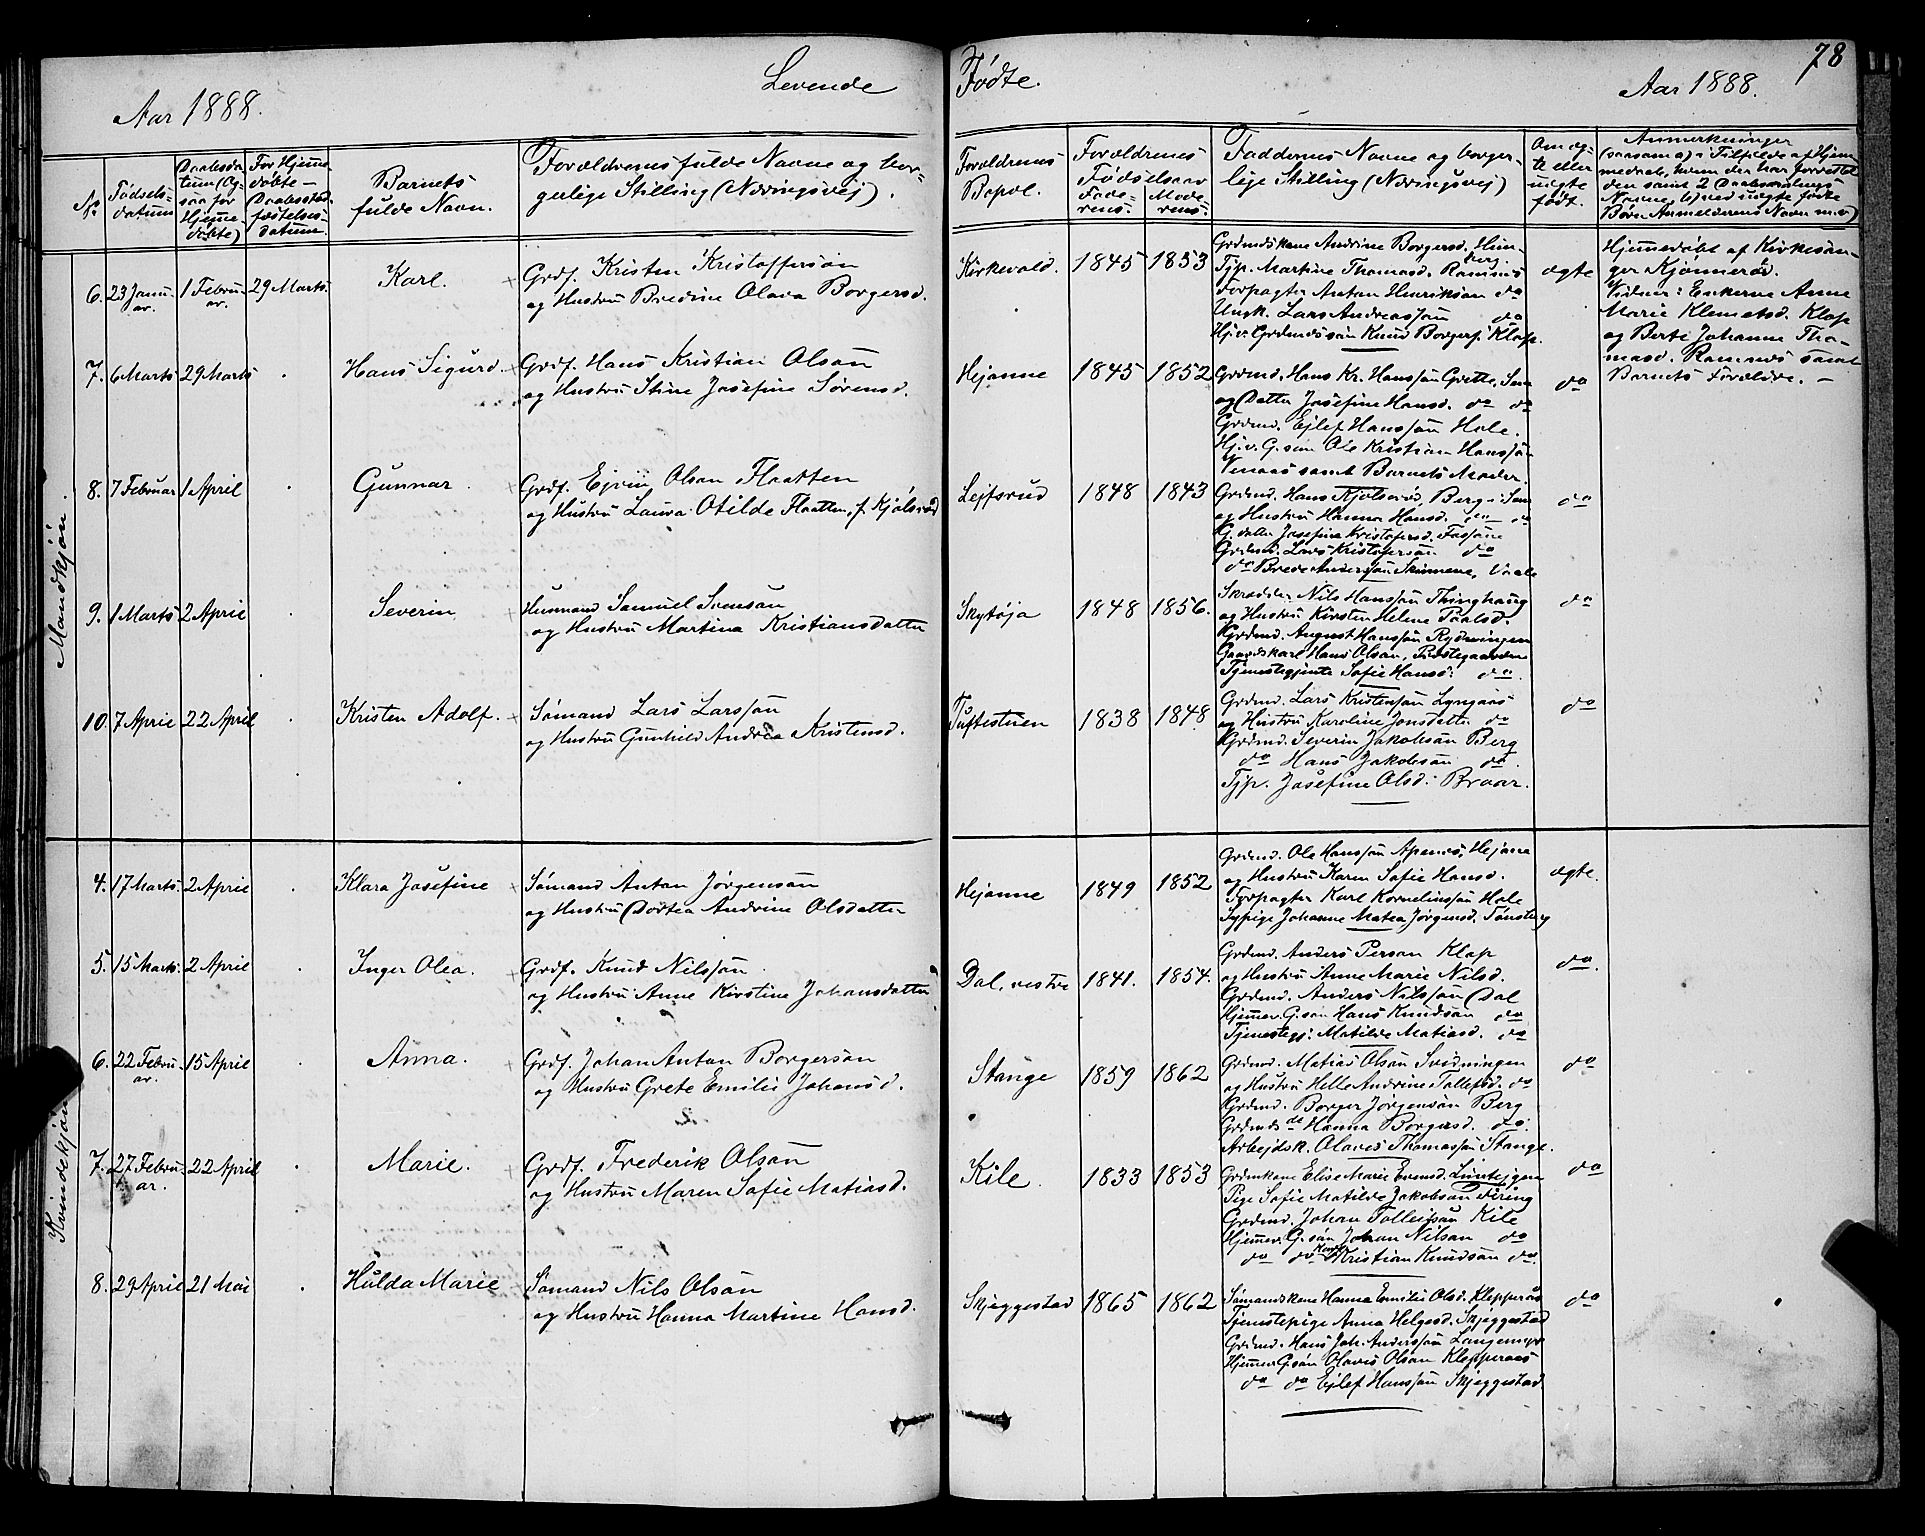 78
Levende Fødte.
Aar 1888. Aar 1888.
No
Fødsels-
datum
Daabsda-
tum (Og-
saa for
Hjemme-
døbte)
For Hjemme-
døbte —
Daabsstad-
fæstelses-
datum.
Barnets
fulde Navn.
Forældrenes fulde Navne og bor-
gerlige Stilling (Næringsvej).
Forældrenes
Bopæl.
Forældrenes
Fødselsaar
Fade-
rens.
Mode-
rens.
Faddernes Navne og borger-
lige Stilling (Næringsvej)
Om æg-
te eller
uægte
født.
Anmerkninger
(saasom a) i Tilfælde af Hjem-
medaab, hvem der har forrettet
den samt 2 Daabsvidners
Navne, b) ved uægte fødte
Børn Anmelderens Navn m.v.)
Mandkjøn.
6. 23 Janu-
ar. 1 Febru-
ar. 29 Marts. Karl.
Grdf. Kristen Kristoffersøn
og Hustru Bredine Olava Borgersd.
Kirkevold. 1845 1853
Grdmdskone Andrine Borgersd. Him-
berg.
Tjp. Martine Thomasd. Ramnes
Forpagter Anton Henriksøn do
Ungk. Lars Andreassøn do
Hj.v. Grdmdssøn Knud Borgers. Klop.
ægte
Hjemmedøbt af Kirkesan-
ger Kjønnerød.
Vidner: Enkerne Anne
Marie Klemetsd. Klop
og Berte Johanne Tho-
masd. Ramnes samt
Barnets Forældre. —
7. 6 Marts 29 Marts Hans Sigurd.
Grdf. Hans Kristian Olsøn
og Hustru Stine Josefine Sørensd.
Hejanne 1845 1852
Grdmd. Hans Kr. Hanssøn Grette, Sem
og Datter Josefine Hansd. do do
Grdmd. Ejlef Hanssøn Hole.
Hj.v. G.søn Ole Kristian Hanssøn
Venaas samt Barnets Moder.
do
8. 7 Februar 1 April Gunnar.
Grdf. Ejvin Olsen Flaatten
og Hustru Laura Otilde Flaatten, f. Kjølsrød
Lejfsrud 1848 1843
Grdmd. Hans Kjølsrød, Berg i Sem
og Hustru Hanna Hansd. do do
G.datter Josefine Kristofersd. Fossane
Grdmd. Lars Kristofersøn do
do Brede Anderssøn Skinmene, Vaale
do
9. 1 Marts 2 April Severin
Husmand Samuel Svensøn
og Hustru Martina Kristiansdatter
Skytøja 1848 1856.
Skrædder Nils Hanssøn Thinghaug
og Hustru Kirsten Helene Paalsd.
Grdmd. August Hanssøn Rydningen
Gaardskarl Hans Olsen, Præstegaarden
Tjenestegjente Sofie Hansd: do
do
10. 7 April 22 April Kristen Adolf.
Sømand Lars Larssøn
og Hustru Gunhild Andrea Kristensd.
Tuftestuen 1838 1848
Grdmd. Lars Kristensøn Lyngaas
og Hustru Karoline Jonsdatter do
Grdmd. Severin Jakobsøn Berg
do Hans Jakobsøn do
Tjp. Josefine Olsd: Braar.
do
Kvindekjøn
4. 17 Marts. 2 April Klara Josefine
Sømand Anton Jørgensøn
og Hustru Dortea Andrine Olsdatter
Hejanne 1849 1852
Grdmd. Ole Hanssøn Apenes, Hejanne
og Hustru Karen Sofie Hansd.
Forpagter Karl Korneliussøn Hole
Sypige Johanne Matea Jørgensd. Tønsberg
ægte.
5. 15 Marts. 2 April Inger Olea.
Grdf. Knud Nilssøn
og Hustru Anne Kirstine Johansdatter
Dal, vestre 1841. 1854.
Grdmd. Anders Person Klop
og Hustru Anne Marie Nilsd.
Grdmd. Anders Nilssøn Dal
Hjemmev. G.søn Hans Knudsøn do
Tjenestepi: Matilde Matiasd. do
do.
6. 22 Febru-
ar. 15 April Anna.
Grdf. Johan Anton Borgersøn
og Hustru Grete Emilie Johansd.
Stange 1859 1862
Grdmd. Matias Olsøn Svidningen
og Hustru Helle Andrine Tollefsd. do
Grdmd. Borger Jørgensøn Berg
Grdmdsdr Hanna Borgersd. do.
Arbejdsk. Olaves Thomassøn Stange.
do
7. 27 Febru-
ar. 22 April Marie.
Grdf. Frederik Olsøn
og Hustru Maren Sofie Matiasd.
Kile. 1833 1853
Grdmkone Elise Marie Evensd. Linnestjgen
Pige Sofie Matilde Jakobsøn Firing
Grdmd. Johan Tollefsøn Kile
Hjemmev. G.søn Johan Nilsøn do
do do Kristian Knudsøn do.
do
8. 29 April 21 Mai Hulda Marie
Sømand Nils Olsøn
og Hustru Hanna Martine Hansd.
Skjeggestad 1865 1862
Sømandskone Hanna Emilie Olsd. Klopperaas
Tjenestepige Anna Helgesd. Skjeggestad
Grdmd. Hans Joh. Anderssøn Langemyr
Hjemmev. G.søn Olavis Olsøn Klopperaas
do do Ejlef Hanssøn Skjeggestad
do